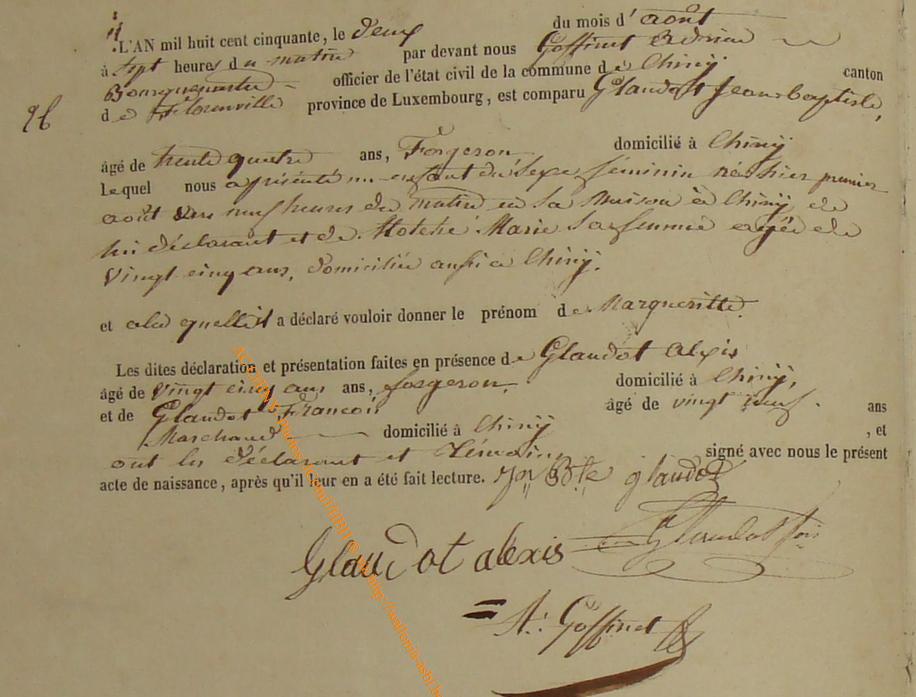 L'AN mil huit cent cinquante, le deux du mois d'août
à sept heures du matin par devant nous Goffinet Adrien
Bourguemestre officier de l'état civil de la commune de Chiny canton
de Florenville province de Luxembourg, est comparu Glaudot Jean baptiste,
26
âgé de trente quatre ans, Forgeron domicilié à Chiny
Lequel nous a présenté un enfant du Sexe féminin née hier premier
août à neuf heures du matin en Sa Maison à Chiny, de
lui déclarant et de Marie Sa femme agée de
Vingt cinq ans, domiciliée aussi à Chiny.
et a déclaré vouloir donner le prénom de Margueritte.
Les dites déclaration et présentation faites en présence de Glaudot Alexis
âgé de vingt cinq ans ans, forgeron, domicilié à Chiny,
et de Glaudot Francois âgé de vingt neuf ans
Marchand domicilié à Chiny , et
ont les déclarant et témoins signé avec nous le présent
acte de naissance, après qu'il leur en a été fait lecture. Jn Bte glaudot
Glaudot alexis Glaudot fois
A. Goffinet